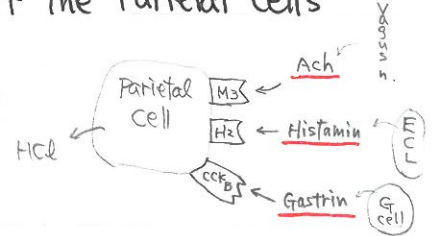 the Parietal Cells
Vagus n.
Ach
Parietal
Cell
M3
H2
Histamin
ECL
HCl
CCKB
Gastrin
G
cell